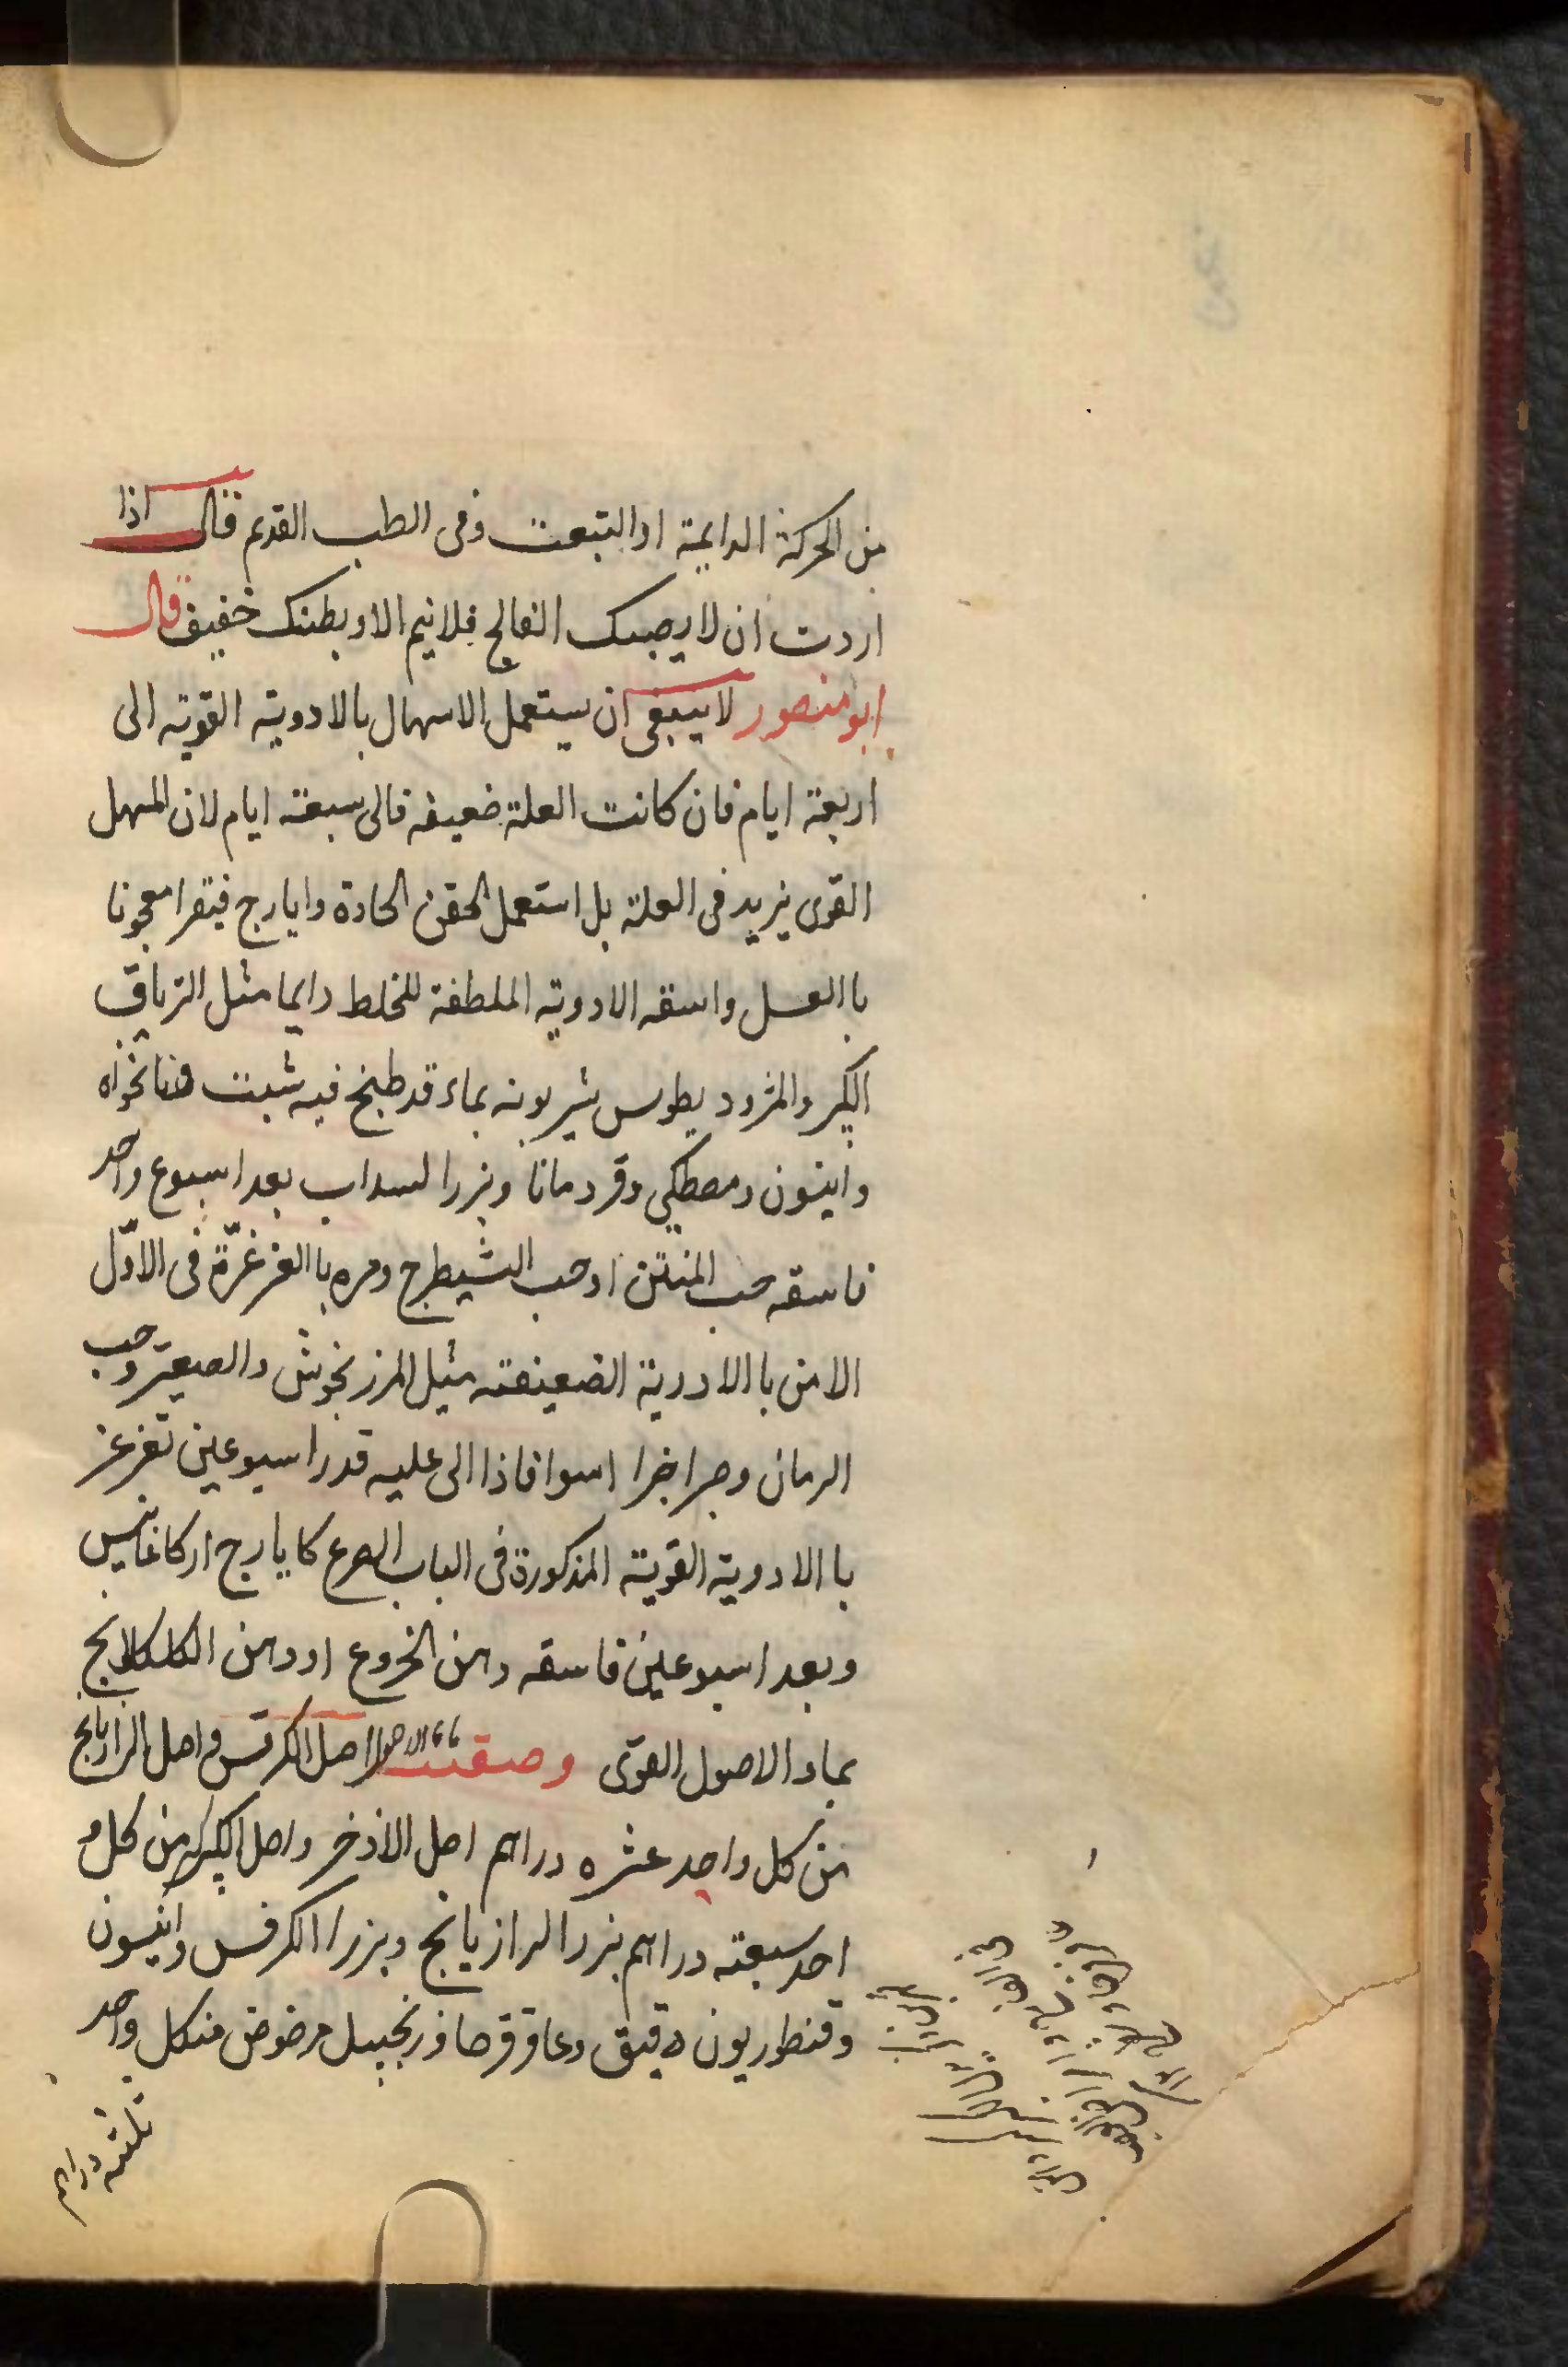 من الحركة الدايمة او التبعت وفى الطب القديم قال اذا
اردت ان لا يصبك الفالج فلا نيم الا و بطنك خفيف قال
ابو منصور لا ينبغى ان يستعمل الاسهال بالادوية القوية الى
اربعة ايام فان كانت العلة ضعيفه فالى سبعة ايام لان المسهل
القوى يزيد فى العلة بل استعمل الحقن الحادة وايارج فيقرا معجونا
باالعسل واسقه الادوية الملطفة للخلط دايما مثل الترياق
الكبير والمثرود يطوس يشربونه بماء قد طبخ فيه شبت ونانخواه
وانيسون ومصطكى وقردمانا وبزر السداب بعد اسبوع واحد
فاسقه حب المنتن او حب الشيطرج ومره باالغرغرة فى الاول
الامن باالادوية الضعيفته مثل المرزنجوش والصعتر وحب
الرمان وجراخرا اسوا فاذا الى عليه قدر اسبوعين تغرغز
باالادوية القوية المذكورة فى الباب الصرع كايارج اركاغانيس
وبعد اسبوعين فاسقه دهن الخروع او دهن الكلكلانج
بماء الاصول القوى وصفته ماء الاصول اصل الكرفس واصل الرازيانج
من كل واحد عشره دراهم اصل الاذخر واصل الكبر من كل و
احد سبعته دراهم بزر الرازيانج وبزر الكرفس وانيسون
وقنطوريون دقيق وعاقرقرحا وزنجبيل مرضوض منكل واحد
ثلثة دراهم